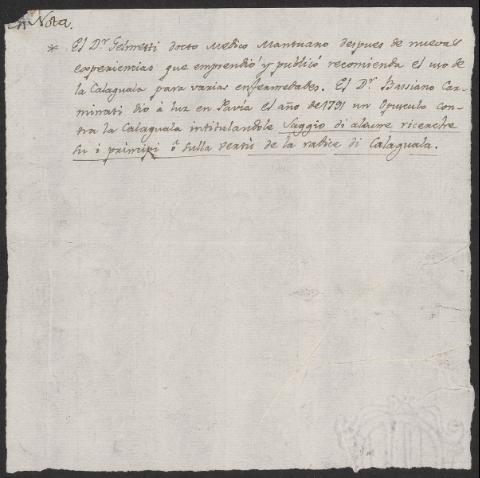 Nota
* El D.r Gelmetti docto Medico Mantuano despues de nuevas
experiencias que emprendió y publicó recomienda el uso de
la Calaguala para varias enfermedades. El D.r Bassiano Car-
minati dio à luz en Pavía el año de 1791 un Opusculo con-
tra la Calaguala intitulandole Saggio di alcune ricerche
su i principi ò sulla de la radice di Calaguala.